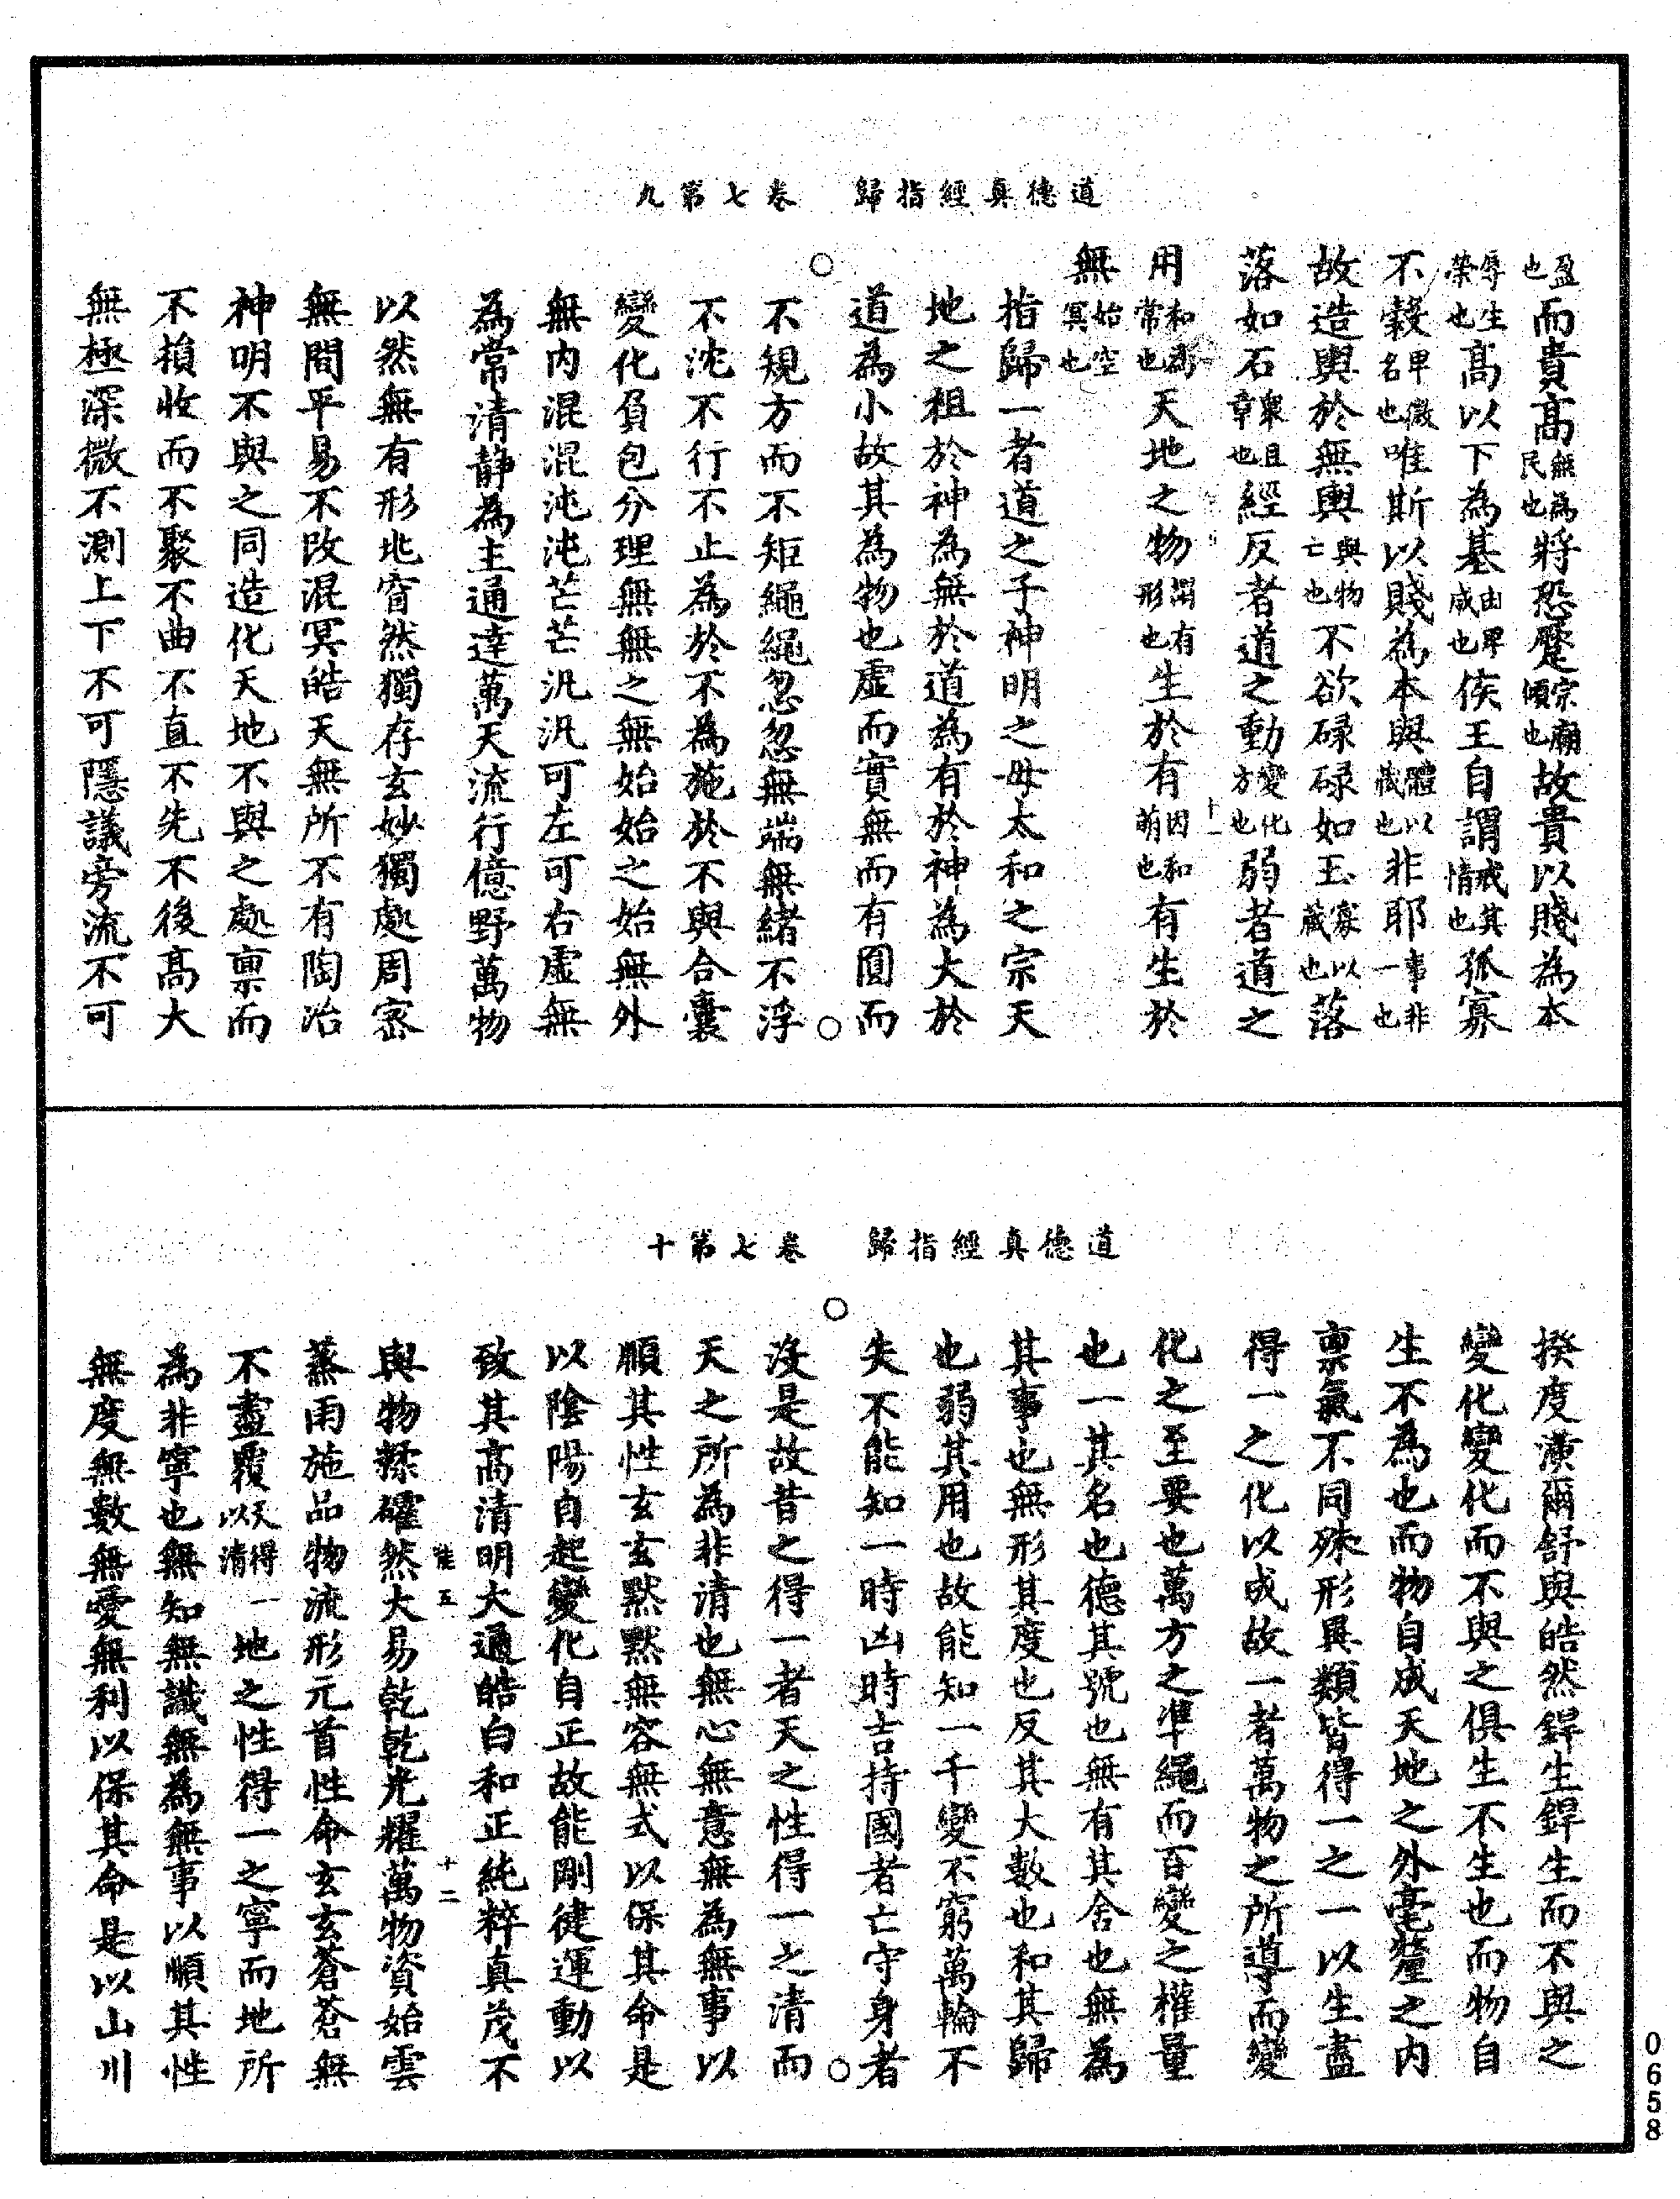 道德真經指歸　卷七第九
盈也而貴高無為民也將恐蹷宗廟傾也故貴以賤為本
辱生榮也高以下為基由卑成也侯王自謂戒其情也孤寡
不穀卑微名也唯斯以賤為本與體以裁也非耶事非一也
故造輿於無輿與物亡也不欲碌碌如玉寡以藏也落
落如石衆且章也經反者道之動變化方也弱者道之
用和為常也天地之物謂有形也生於有因和萌也有生於
十一
無始空冥也
指歸一者道之子神明之母太和之宗天
地之祖於神為無於道為有於神為大於
道為小故其為物也虛而實無而有圓而
不規方而不矩繩繩忽忽無端無緒不浮
不沈不行不止為於不為施於不與合囊
變化負包分理無無之無始始之始無外
無內混混沌沌芒芒汎汎可左可右虛無
為常清靜為主通達萬天流行億野萬物
以然無有形兆窅然獨存玄妙獨處周密
無間平易不改混冥皓天無所不有陶冶
神明不與之同造化天地不與之處稟而
不損收而不聚不曲不直不先不後高大
無極深微不測上下不可隱議旁流不可
道德真經指歸　卷七第十
揆度潢爾舒與皓然銲生銲生而不與之
變化變化而不與之俱生不生也而物自
生不為也而物自成天地之外毫釐之內
稟氣不同殊形異類皆得一之一以生盡
得一之化以成故一者萬物之所導而變
化之至要也萬方之準繩而百變之權量
也一其名也德其號也無有其舍也無為
其事也無形其度也反其大數也和其歸
也弱其用也故能知一千變不窮萬輪不
失不能知一時凶時吉持國者亡守身者
沒是故昔之得一者天之性得一之清而
天之所為非清也無心無意無為無事以
順其性玄玄默默無容無式以保其命是
以陰陽自起變化自正故能剛健運動以
致其高清明大通皓白和正純粹真茂不
五　十二
與物糅礭然大易乾乾光耀萬物資始雲
蒸雨施品物流形元首性命玄玄蒼蒼無
不盡覆天得一以清地之性得一之寧而地所
為非寧也無知無識無為無事以順其性
無度無數無愛無利以保其命是以山川
0658